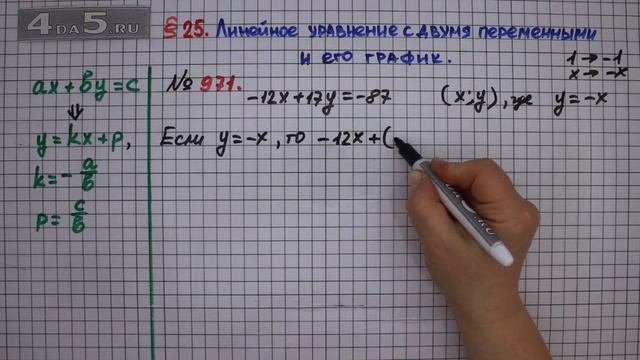 4DA5.RU
§ 25. Линейное уравнение с двумя переменными
и его график.
ax + by = c
⇓
y = kx + p,
k = - a/b
p = c/b
№ 971.
-12x + 17y = -87
(x; y), где y = -x
1 → -1
x → -x
Если y = -x, то -12x + (